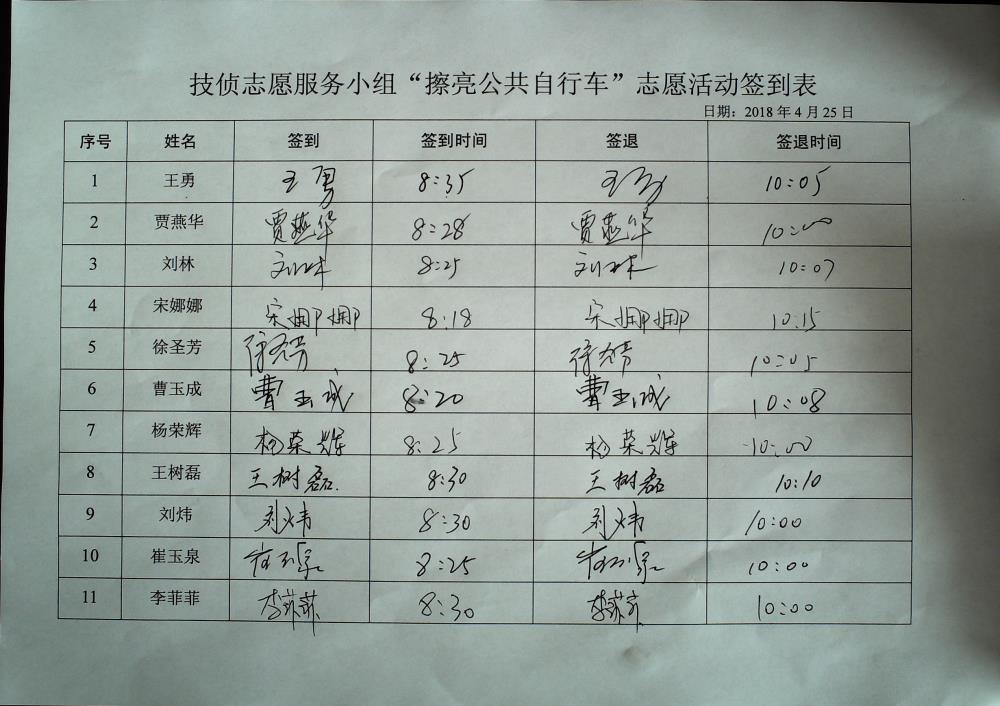 技侦志愿服务小组“擦亮公共自行车”志愿活动签到表
日期：2018 年 4 月 25 日
序号 姓名 签到 签到时间 签退 签退时间
1 王勇 王勇 8:35 王勇 10:05
2 贾燕华 贾燕华 8:28 贾燕华 10:00
3 刘林 刘林 8:25 刘林 10:07
4 宋娜娜 宋娜娜 8:18 宋娜娜 10:15
5 徐圣芳 徐圣芳 8:25 徐圣芳 10:05
6 曹玉成 曹玉成 8:20 曹玉成 10:08
7 杨荣辉 杨荣辉 8:25 杨荣辉 10:00
8 王树磊 王树磊. 8:30 王树磊 10:10
9 刘炜 刘炜 8:30 刘炜 10:00
10 崔玉泉 崔玉泉 8:25 崔玉泉 10:00
11 李菲菲 李菲菲 8:30 李菲菲 10:00